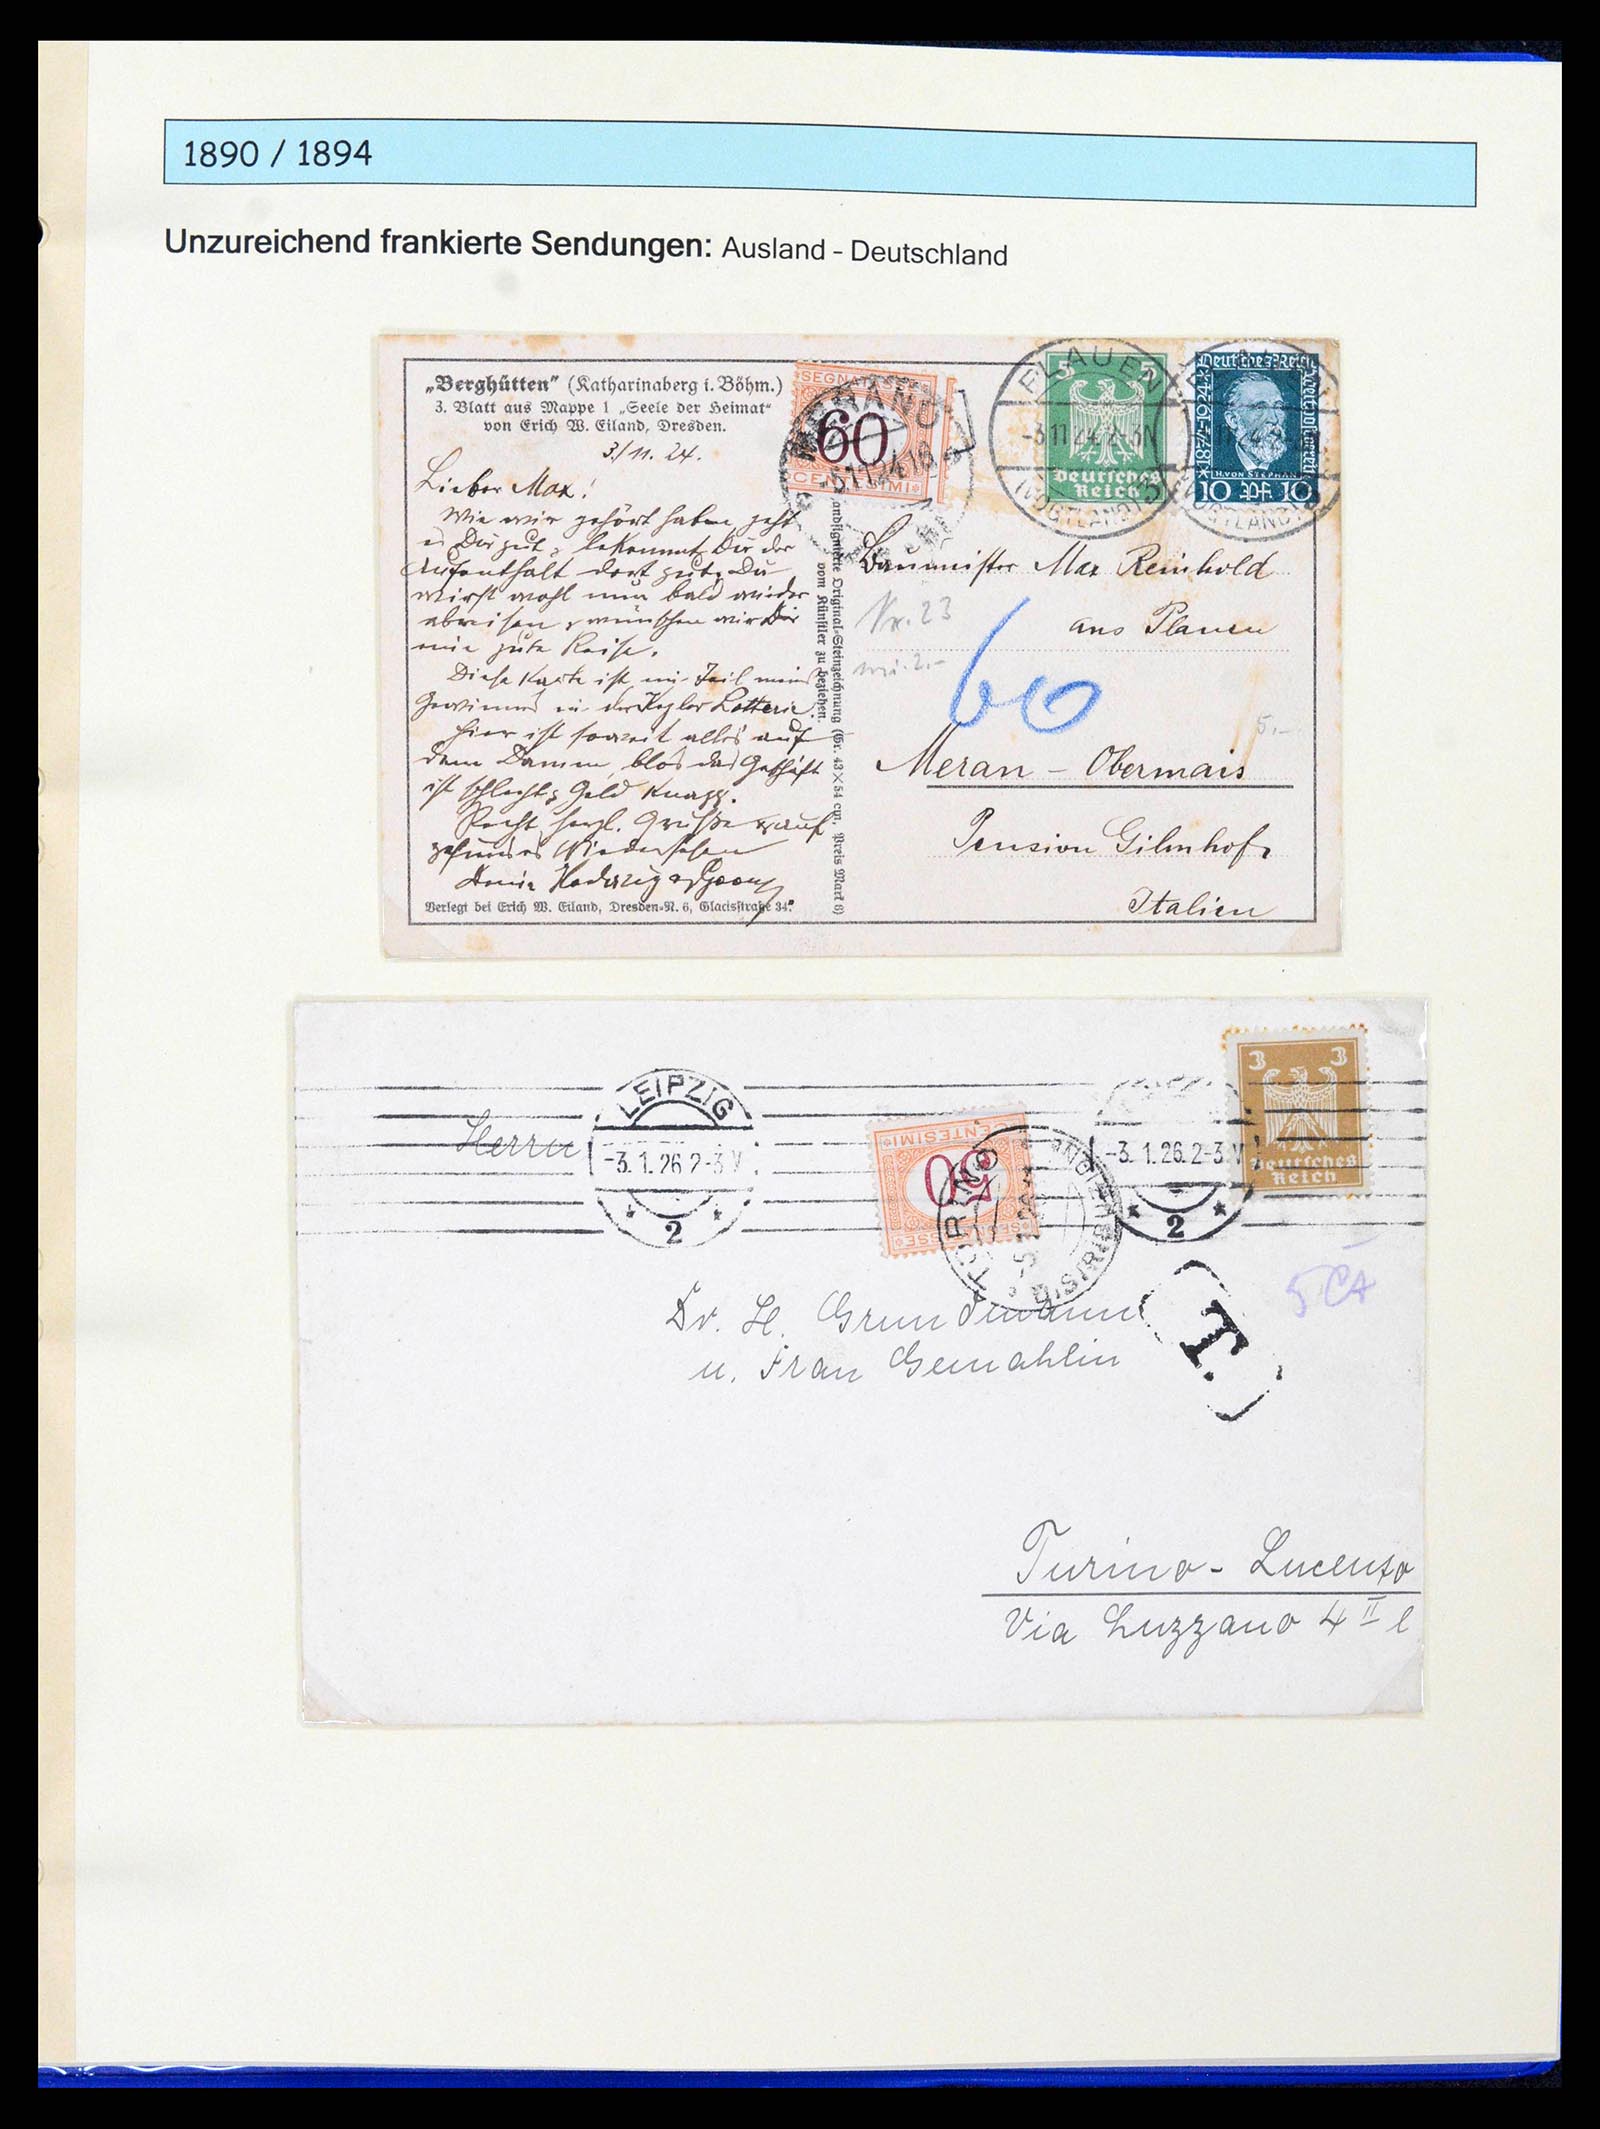 1890 / 1894
Unzureichend frankierte Sendungen: Ausland - Deutschland
„Berghütten“ (Katharinaberg i. Böhm.)
3. Blatt aus Mappe 1 „Seele der Heimat“
von Erich W. Eiland, Dresden.
3./11. 24.
Lieber Max!
Wie wir gehört haben, geht
es Dir gut, bekommt Dir der
Aufenthalt dort gut. Du
wirst wohl nun bald wieder
abreisen, wünschen wir Dir
eine gute Reise.
Diese Karte ist ein Teil meines
Gewinnes in der Kegler Lotterie.
Hier ist soweit alles auf
dem Damm, blos das Geschäft
ist schlecht, Geld knapp.
Recht herzl. Grüße auf
gesundes Wiedersehen
Verlegt bei Erich W. Eiland, Dresden-N. 6, Glacisstraße 34.
Handsignierte Original-Steinzeichnung (Gr. 43×54 cm, Preis Mark 6)
vom Künstler zu beziehen.
SEGNATASSE
60
CENTESIMI
MERANO
5.11.24.18
PLAUEN
-3.11.24.2-3N
(VOGTLAND)
5 5
Deutsches
Reich
Deutsches Reich
1874-1924
Weltpostverein
H. VON STEPHAN
10 Pf. 10
(VOGTLAND)
Baumeister Max Reinhold
aus Plauen
Nr. 23
mi. 2.-
60
5.-
Meran - Obermais
Pension Gilmhof,
Italien
LEIPZIG
-3.1.26.2-3V
* 2 *
Herrn
CENTESIMI
50
SEGNATASSE
TORINO
-3.1.26.2-3V
* 2 *
3 3
Deutsches
Reich
T.
5 Ct
Dr. H. Grundmann
u. Frau Gemahlin
Turino - Lucenzo
Via Luzzano 4 II l